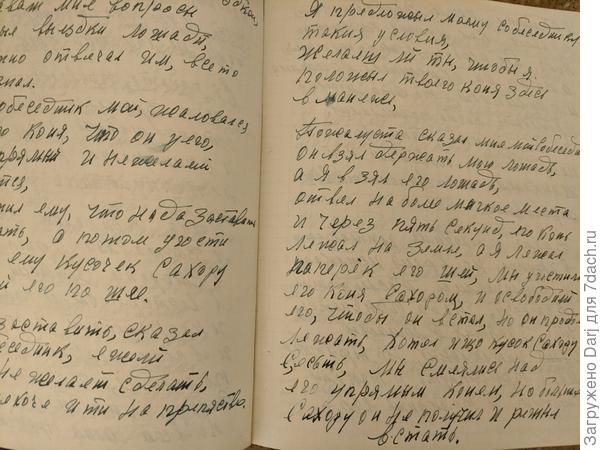 вал мне вопросы
выездки лошади,
но отвечал им, все то
знал.
обеседник мой, жаловался
коня, что он у его,
упрямый и не желаил
ему, что нада заставить
а потом угости
ему кусочек сахару
й его по шее.
заставить, сказал
беседник, ежели
не желаит сделать,
не хоче идти на препятство.
Я предложил моему собеседнику
такия условия,
желаиш ли ты, чтобы я
положил твоего коня здесь
в манеже,
Пожалуста сказал мне мой собеседн
он взял держать мою лошадь,
а я взял его лошадь,
отвел на боле мягкое места
и через пять секунд, его конь
лежал на земле, а я лежал
наперёк его шеи, мы угостили
его коня сахаром, и освободили
его, чтобы он встал, но он прод
лежать, хотел ищо кусок сахару
съесть, мы смеялись над
его упрямым конем, но больше
сахару он не получил и решил
встать.
Загружено Darj для 7dach.ru